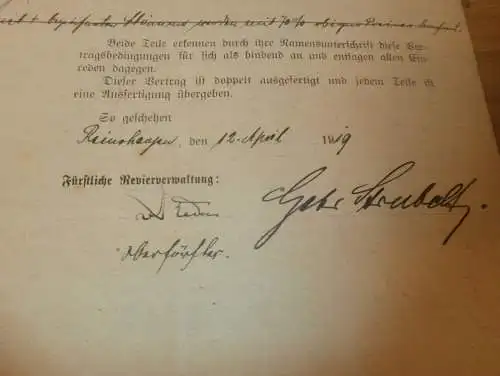 werden mit 70%
Beide Teile erkennen durch ihre Namensunterschrift diese Ver-
tragsbedingungen für sich als bindend an und entsagen allen Ein-
reden dagegen.
Dieser Vertrag ist doppelt ausgefertigt und jedem Teile ist
eine Ausfertigung übergeben.
So geschehen
Reinshagen, den 12. April 1919
Fürstliche Revierverwaltung:
Gebr Strubelt,
Oberförster.